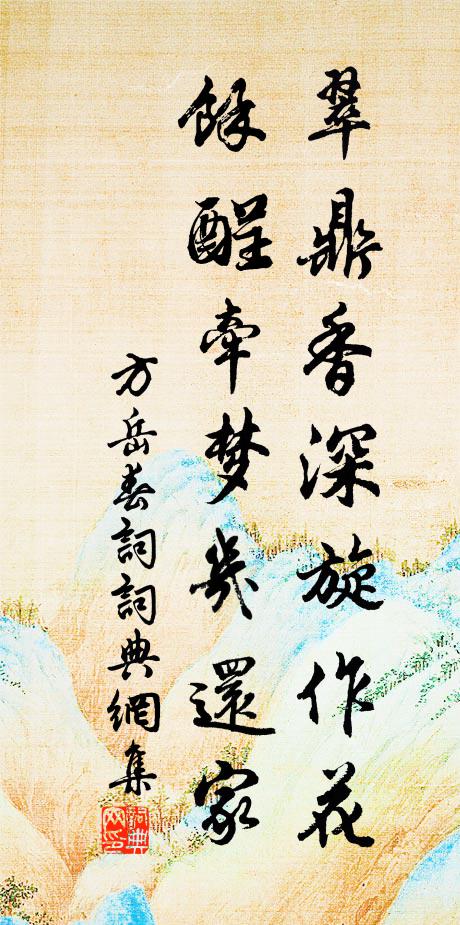 翠鼎香深旋作花
餘酲牽梦幾還家
方岳春詞詞典網集
詞典網印